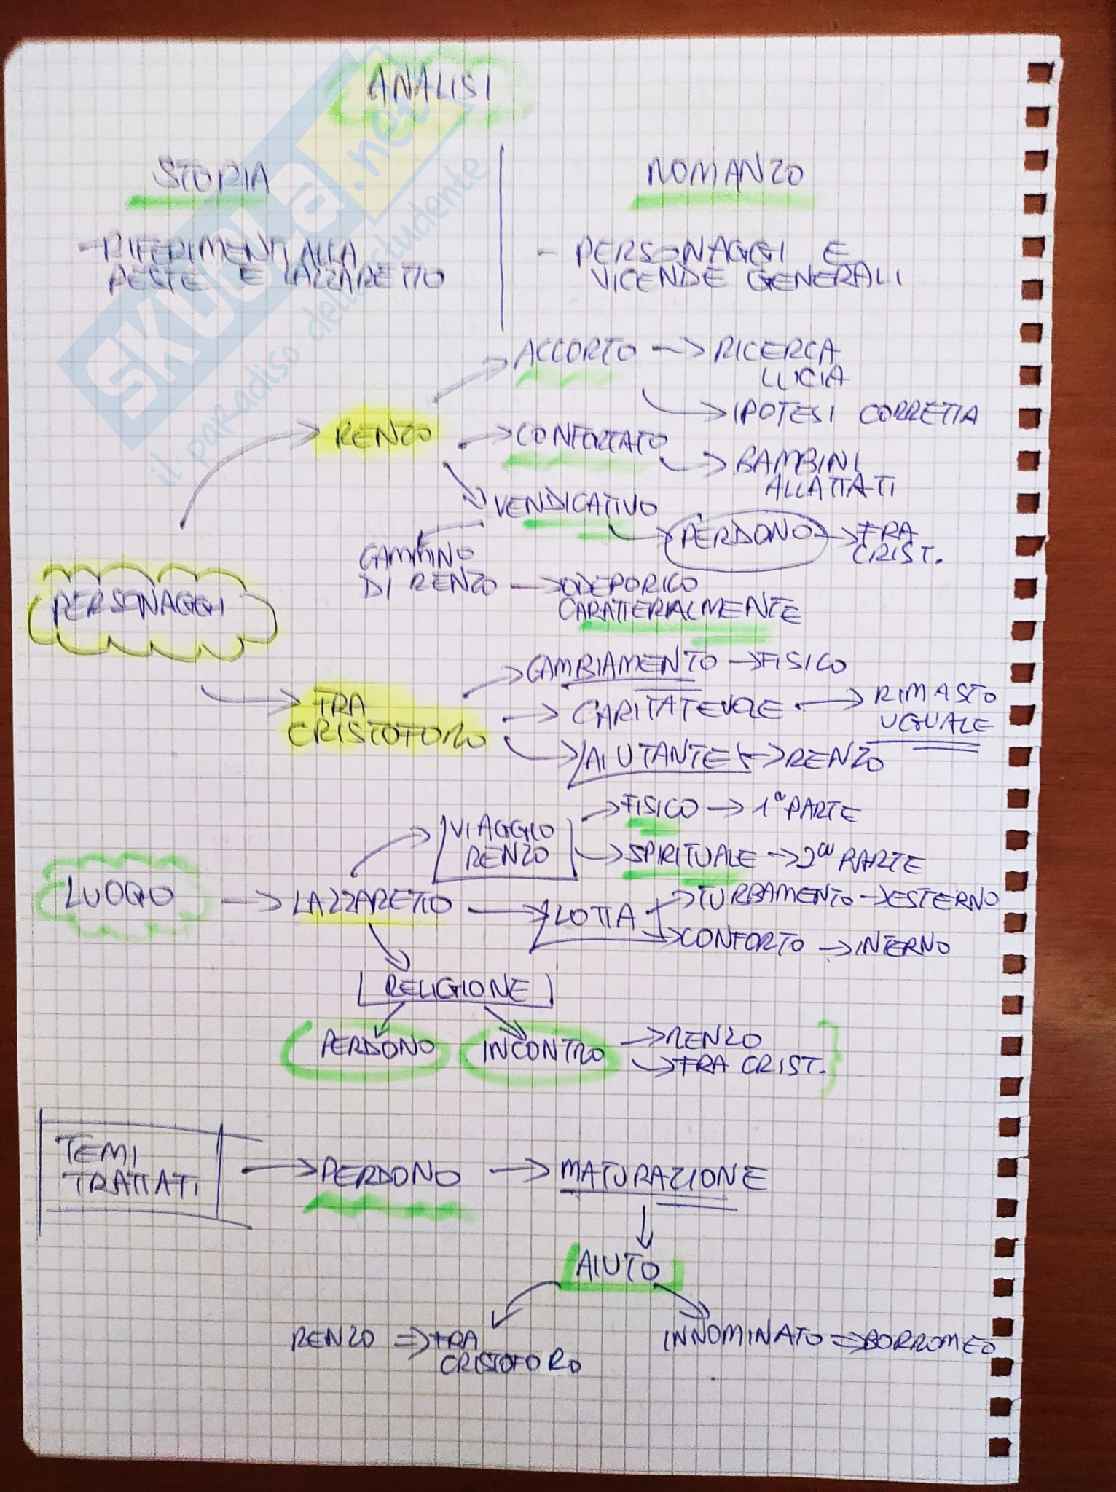 ANALISI
STORIA
ROMANZO
- RIFERIMENTI ALLA
PESTE E LAZZARETTO
- PERSONAGGI E
VICENDE GENERALI
ACCORTO → RICERCA
LUCIA
→ IPOTESI CORRETTA
RENZO
→ CONFORTATO
→ BAMBINI
ALLATTATI
VENDICATIVO
→ PERDONO → FRA
CRIST.
CAMMINO
DI RENZO → ODEPORICO
CARATTERIALMENTE
PERSONAGGI
→ CAMBIAMENTO → FISICO
→ FRA
CRISTOFORO
→ CARITATEVOLE → RIMASTO
UGUALE
→ AIUTANTE → RENZO
VIAGGIO
RENZO
→ FISICO → 1ª PARTE
→ SPIRITUALE → 2ª PARTE
LUOGO → LAZZARETTO → LOTTA
→ TURBAMENTO → ESTERNO
→ CONFORTO → INTERNO
RELIGIONE
PERDONO INCONTRO → RENZO
→ FRA CRIST.
TEMI
TRATTATI
→ PERDONO → MATURAZIONE
AIUTO
RENZO ⇒ FRA
CRISTOFORO
INNOMINATO ⇒ BORROMEO
SKUOLA.net
il paradiso dello studente